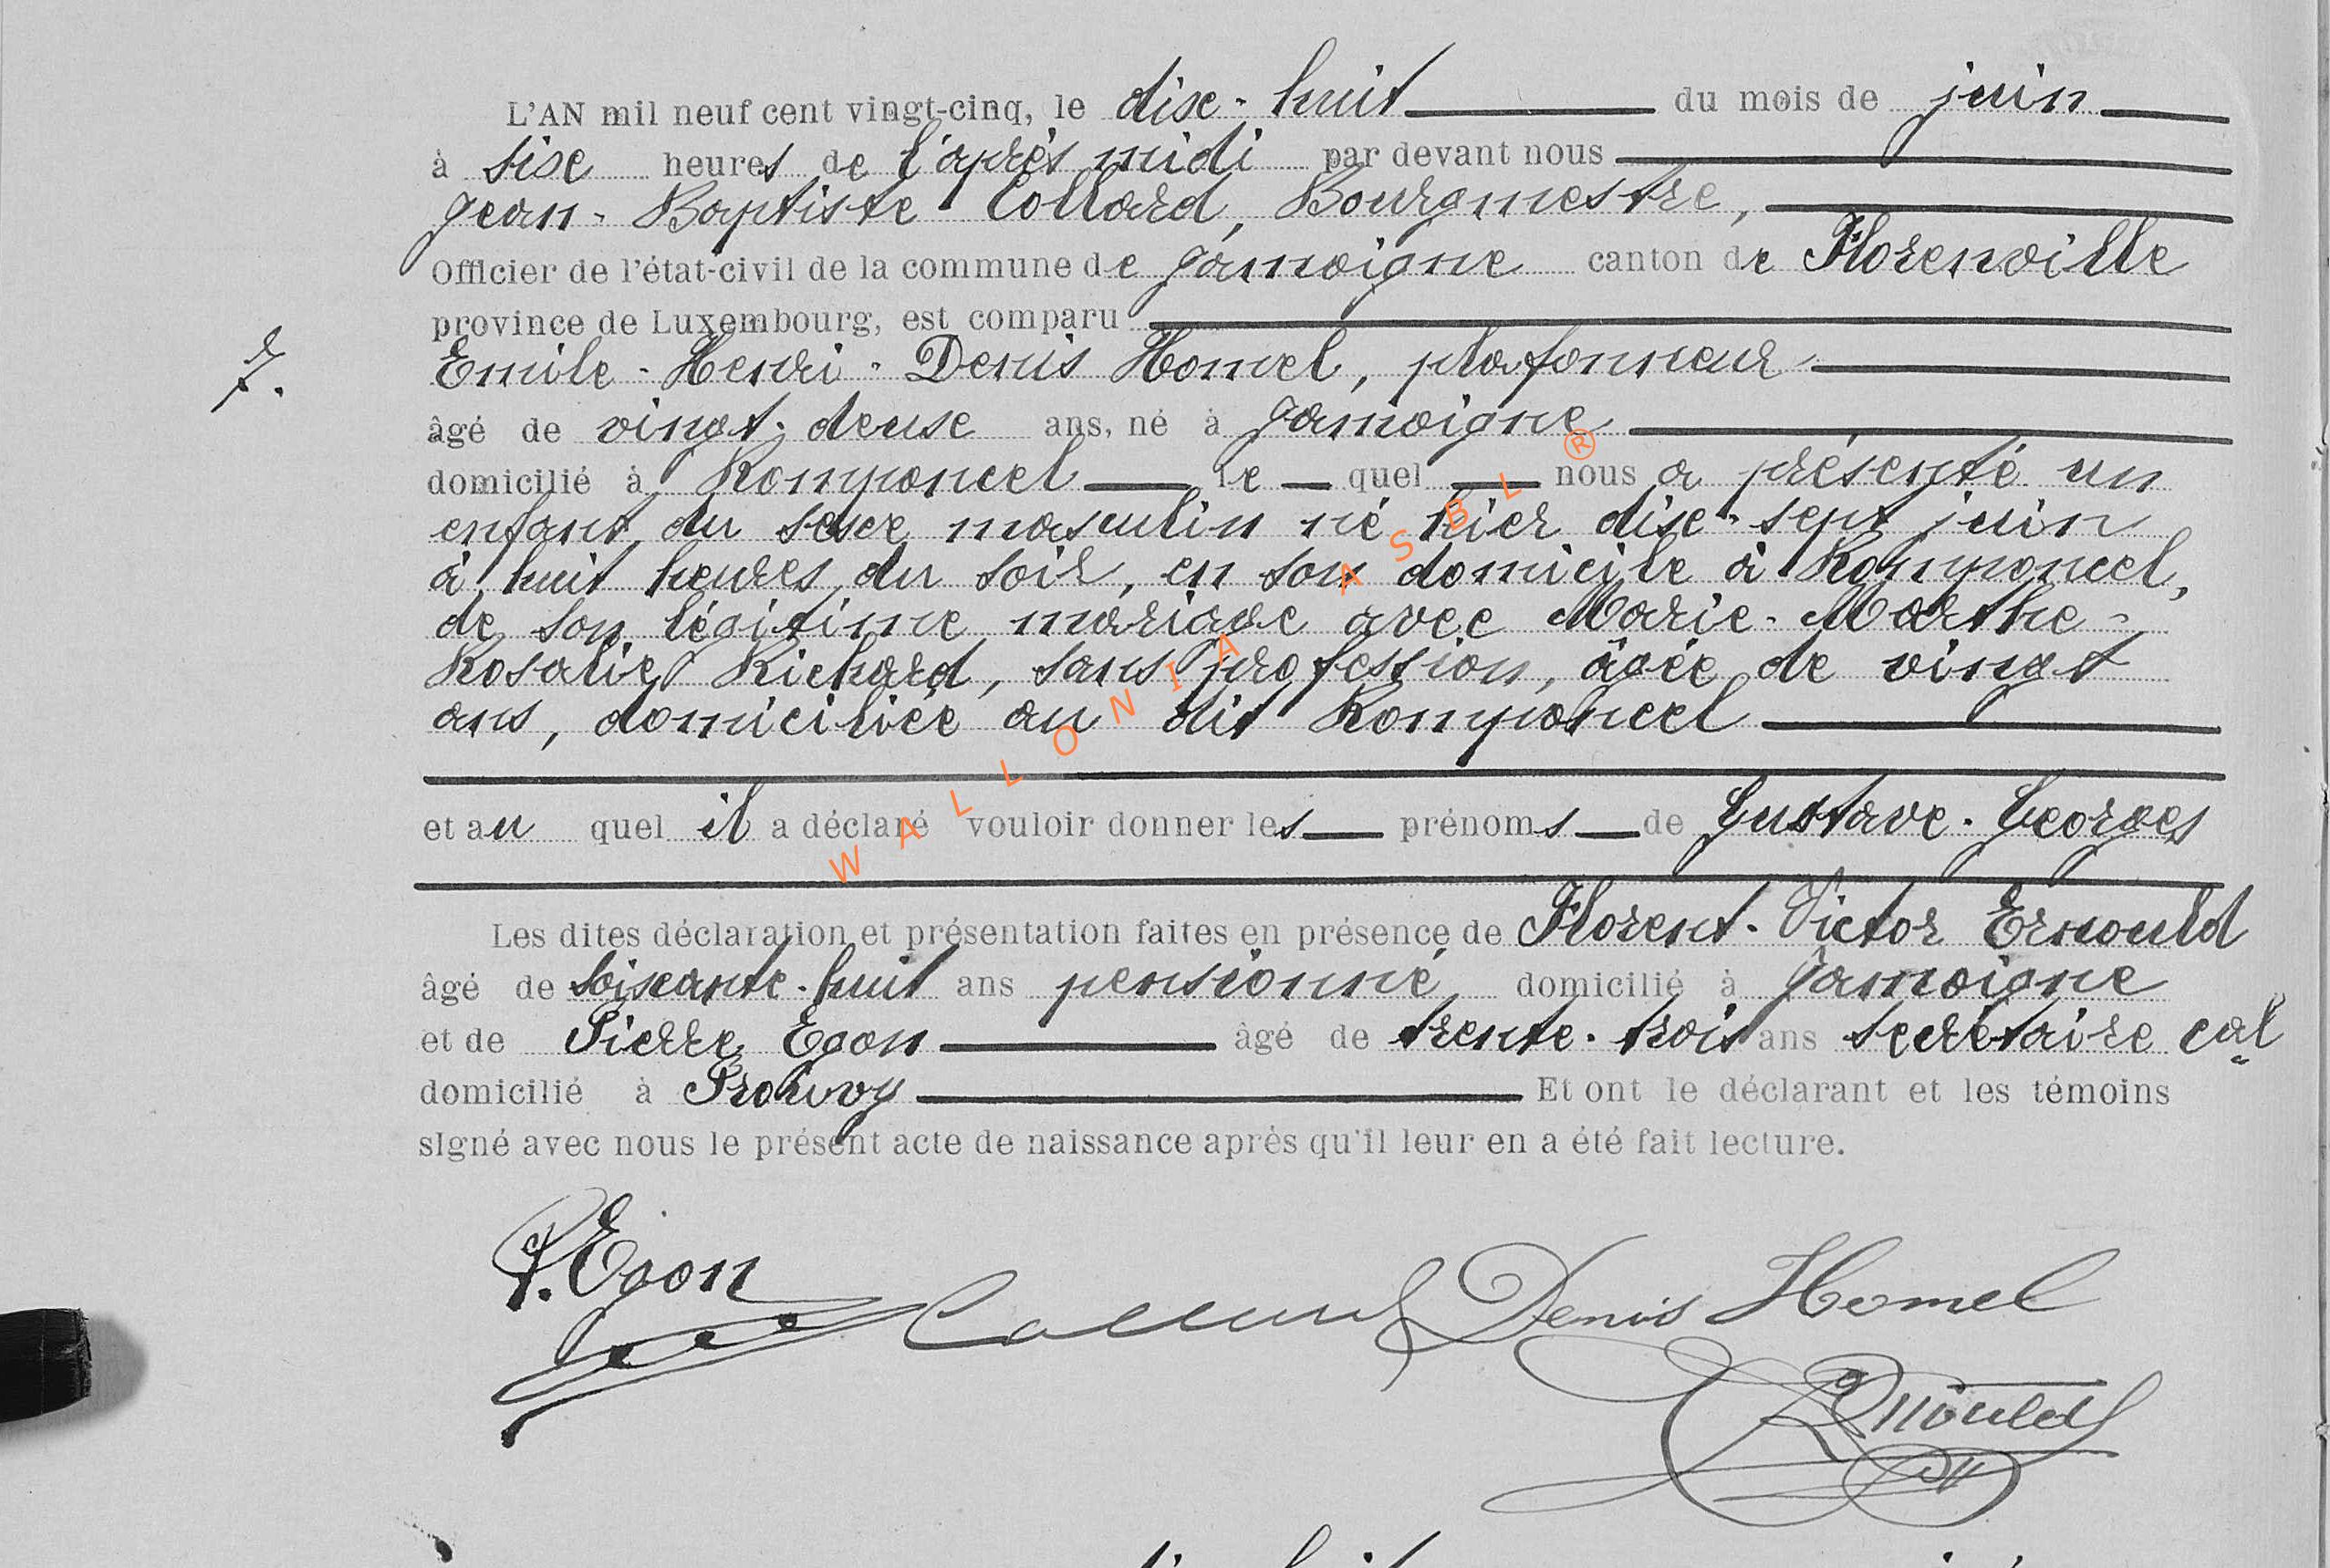 L'AN mil neuf cent vingt-cinq, le dix-huit du mois de juin
à six heures de l'après midi par devant nous
Jean-Baptiste Collard, Bourgmestre,
Officier de l'état-civil de la commune de Jamoigne canton de Florenville
province de Luxembourg, est comparu
7. Emile-Henri-Denis Homel, plafonneur
âgé de vingt-deux ans, né à Jamoigne
domicilié à Romponcel le quel nous a présenté un
enfant du sexe masculin né hier dix-sept juin
à huit heures du soir, en son domicile à Romponcel,
de son légitime mariage avec Marie-Marthe-
Rosalie Richard, sans profession, âgée de vingt
ans, domiciliée au dit Romponcel
et au quel il a déclaré vouloir donner les prénoms de Gustave-Georges
Les dites déclaration et présentation faites en présence de Florent-Victor Ernould
âgé de soixante-huit ans pensionné domicilié à Jamoigne
et de Pierre Egon âgé de trente-trois ans secrétaire cal
domicilié à Prouvoy Et ont le déclarant et les témoins
signé avec nous le présent acte de naissance après qu'il leur en a été fait lecture.
P. Egon Collard Denis Homel
Ernould
WALLONIA ASBL ®